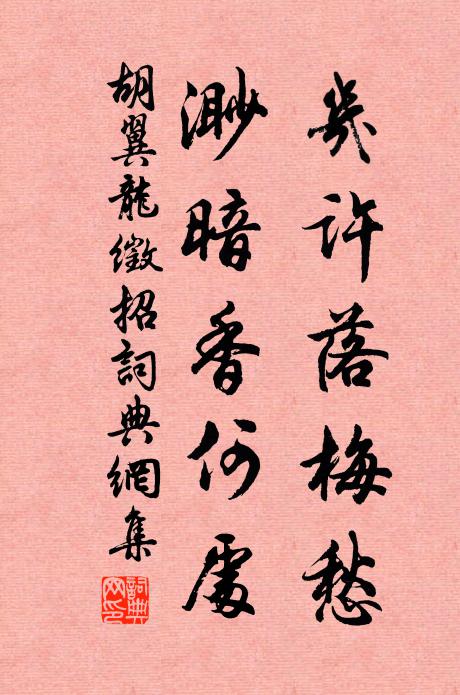 幾許落梅愁
渺暗香何處
胡翼龍徵招詞典網集
詞典网印